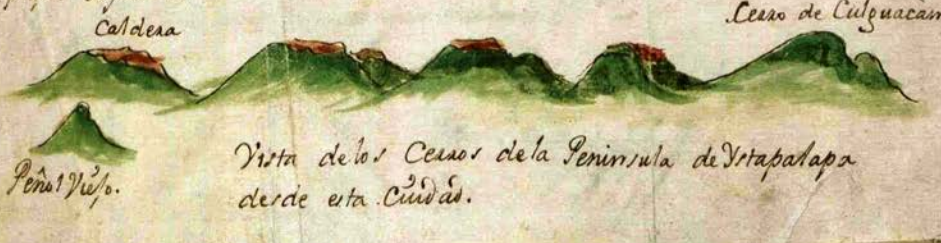 Cerro de Culguacan
Caldera
Peñol Viejo.
Vista de los Cerros de la Peninsula de Ystapalapa
desde esta Ciudad.